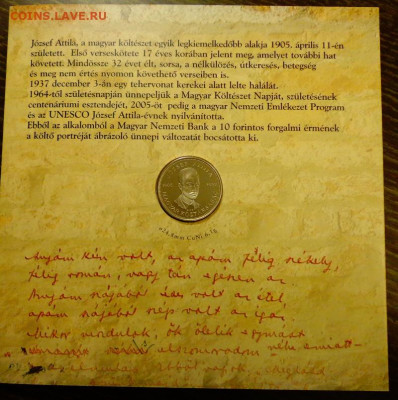 COINS.LAVE.RU
József Attila, a magyar költészet egyik legkiemelkedőbb alakja 1905. április 11-én
született. Első verseskötete 17 éves korában jelent meg, amelyet további hat
követett. Mindössze 32 évet élt, sorsa, a nélkülözés, útkeresés, betegség
és meg nem értés nyomon követhető verseiben is.
1937 december 3-án egy tehervonat kerekei alatt lelte halálát.
1964-től születésnapján ünnepeljük a Magyar Költészet Napját, születésének
centenáriumi esztendejét, 2005-öt pedig a magyar Nemzeti Emlékezet Program
és az UNESCO József Attila-évnek nyilvánította.
Ebből az alkalomból a Magyar Nemzeti Bank a 10 forintos forgalmi érmének
a költő portréját ábrázoló ünnepi változatát bocsátotta ki.
Anyám kún volt, az apám félig székely,
félig román, vagy tán egészen az
Anyám szájából édes volt az étel,
apám szájából szép volt az igaz.
Mikor mozdulok, ők ölelik egymást
elszomorodom néha emiatt